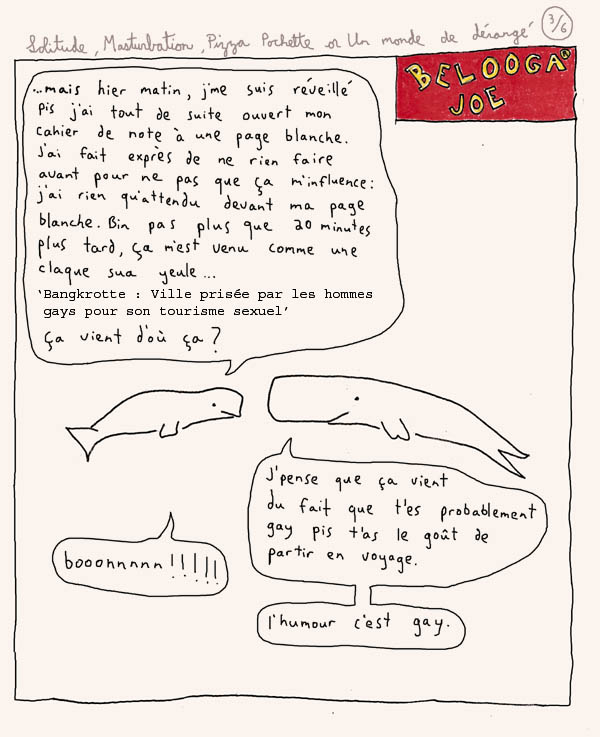 Solitude, Masturbation, Pizza Pochette or Un monde de dérangé
3/6
BELOOGA®
JOE
...mais hier matin, j'me suis réveillé
pis j'ai tout de suite ouvert mon
cahier de note à une page blanche.
J'ai fait exprès de ne rien faire
avant pour ne pas que ça m'influence:
j'ai rien qu'attendu devant ma page
blanche. Bin pas plus que 20 minutes
plus tard, ça m'est venu comme une
claque sua yeule...
‘Bangkrotte : Ville prisée par les hommes
gays pour son tourisme sexuel’
ça vient d'où ça?
J'pense que ça vient
du fait que t'es probablement
gay pis t'as le goût de
partir en voyage.
booonnnnn!!!!!
l'humour c'est gay.